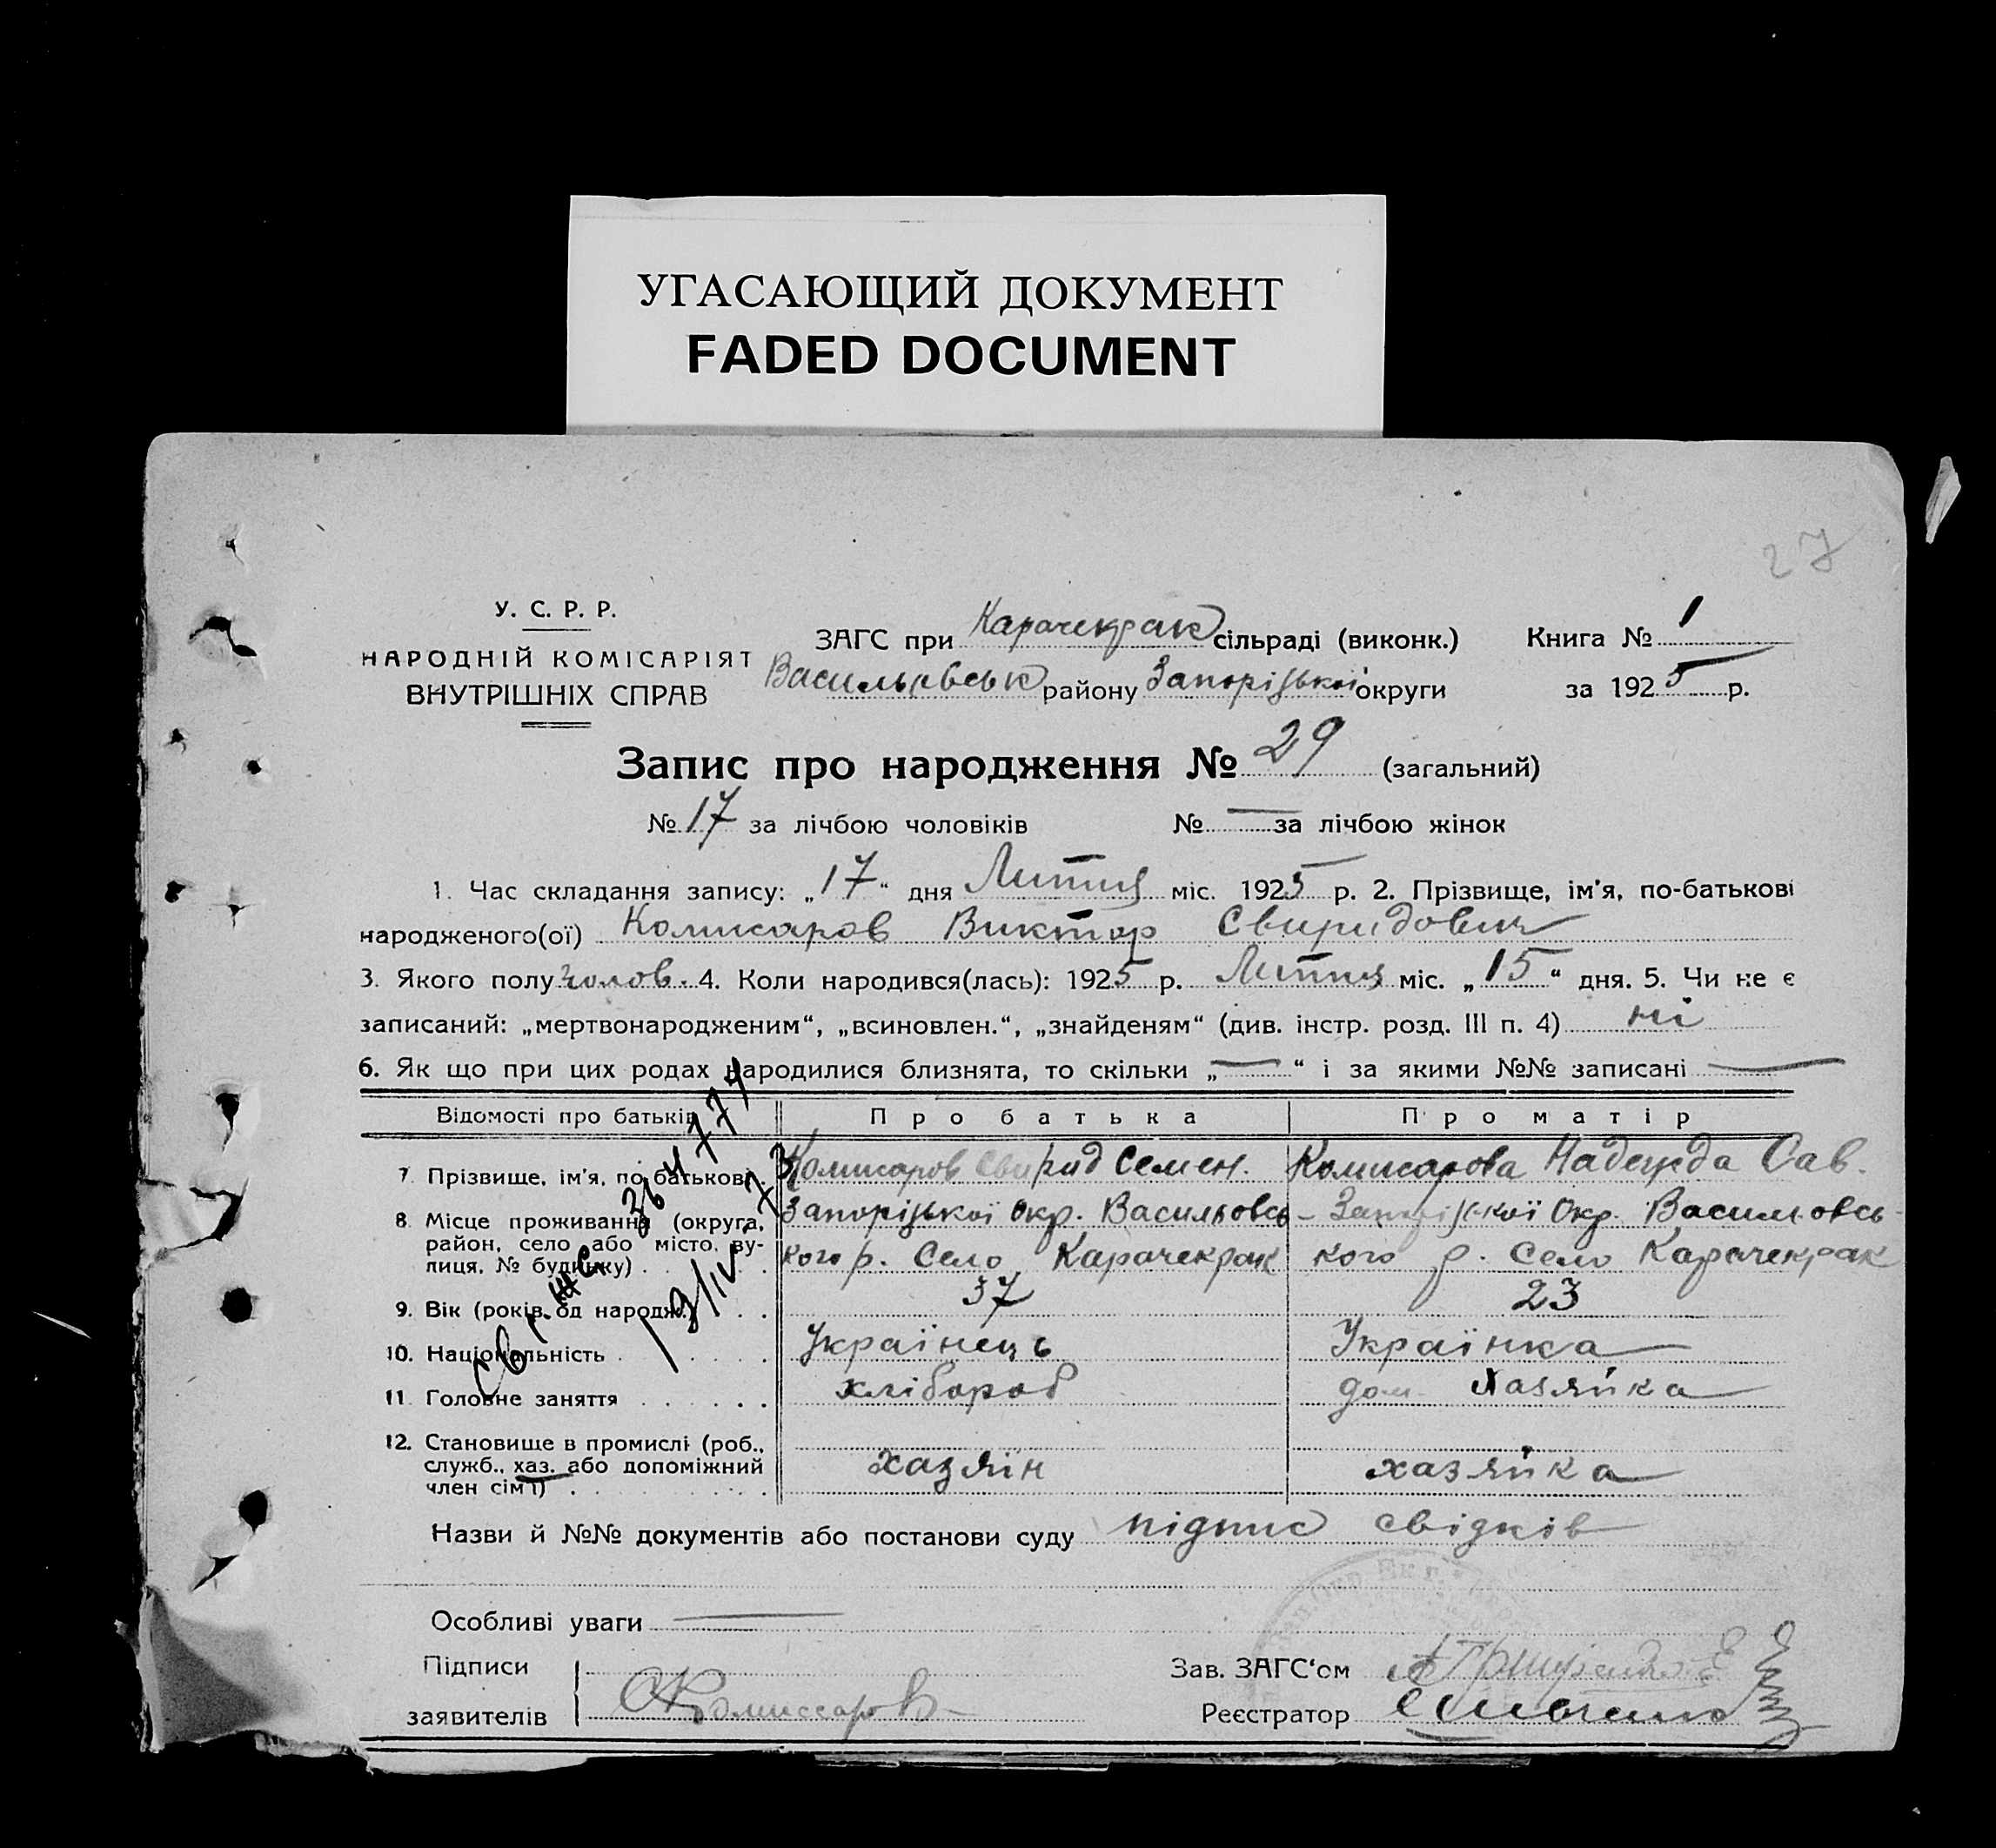 УГАСАЮЩИЙ ДОКУМЕНТ
FADED DOCUMENT
27
У. С. Р. Р.
НАРОДНІЙ КОМІСАРІЯТ
ВНУТРІШНІХ СПРАВ
ЗАГС при Карачекрак сільраді (виконк.)
Васильївськ району Запоріжської округи
Книга № 1
за 1925 р.
Запис про народження № 29 (загальний)
№ 17 за лічбою чоловіків № — за лічбою жінок
1. Час складання запису: „17“ дня Липня міс. 1925 р. 2. Прізвище, ім'я, по-батькові
народженого(ої) Комисаров Виктор Свиридович
3. Якого полу чолов. 4. Коли народився(лась): 1925 р. Липня міс. „15“ дня. 5. Чи не є
записаний: „мертвонародженим“, „всиновлен.“, „знайденям“ (див. інстр. розд. III п. 4) ні
6. Як що при цих родах народилися близнята, то скільки „—“ і за якими №№ записані —
Відомості про батьків Про батька Про матір
7. Прізвище, ім'я, по батькові. Комисаров Свирид Семен. Комисарова Надежда Сав.
8. Місце проживання (округа, район, село або місто, ву-лиця, № будинку) Запоріжської Окр. Васильовсь-
кого р. Село Карачекрак
Запоріжської Окр. Васильовсь-
кого р. Село Карачекрак
9. Вік (років од народж.) 37 23
10. Національність Українець Українка
11. Головне заняття хлібороб дом. Хазяйка
12. Становище в промислі (роб.,
служб., хаз. або допоміжний
член сім'ї) хазяїн хазяйка
Назви й №№ документів або постанови суду підпис свідків
Особливі уваги —
Підписи
заявителів
СКомиссаров
Зав. ЗАГС'ом
Реєстратор